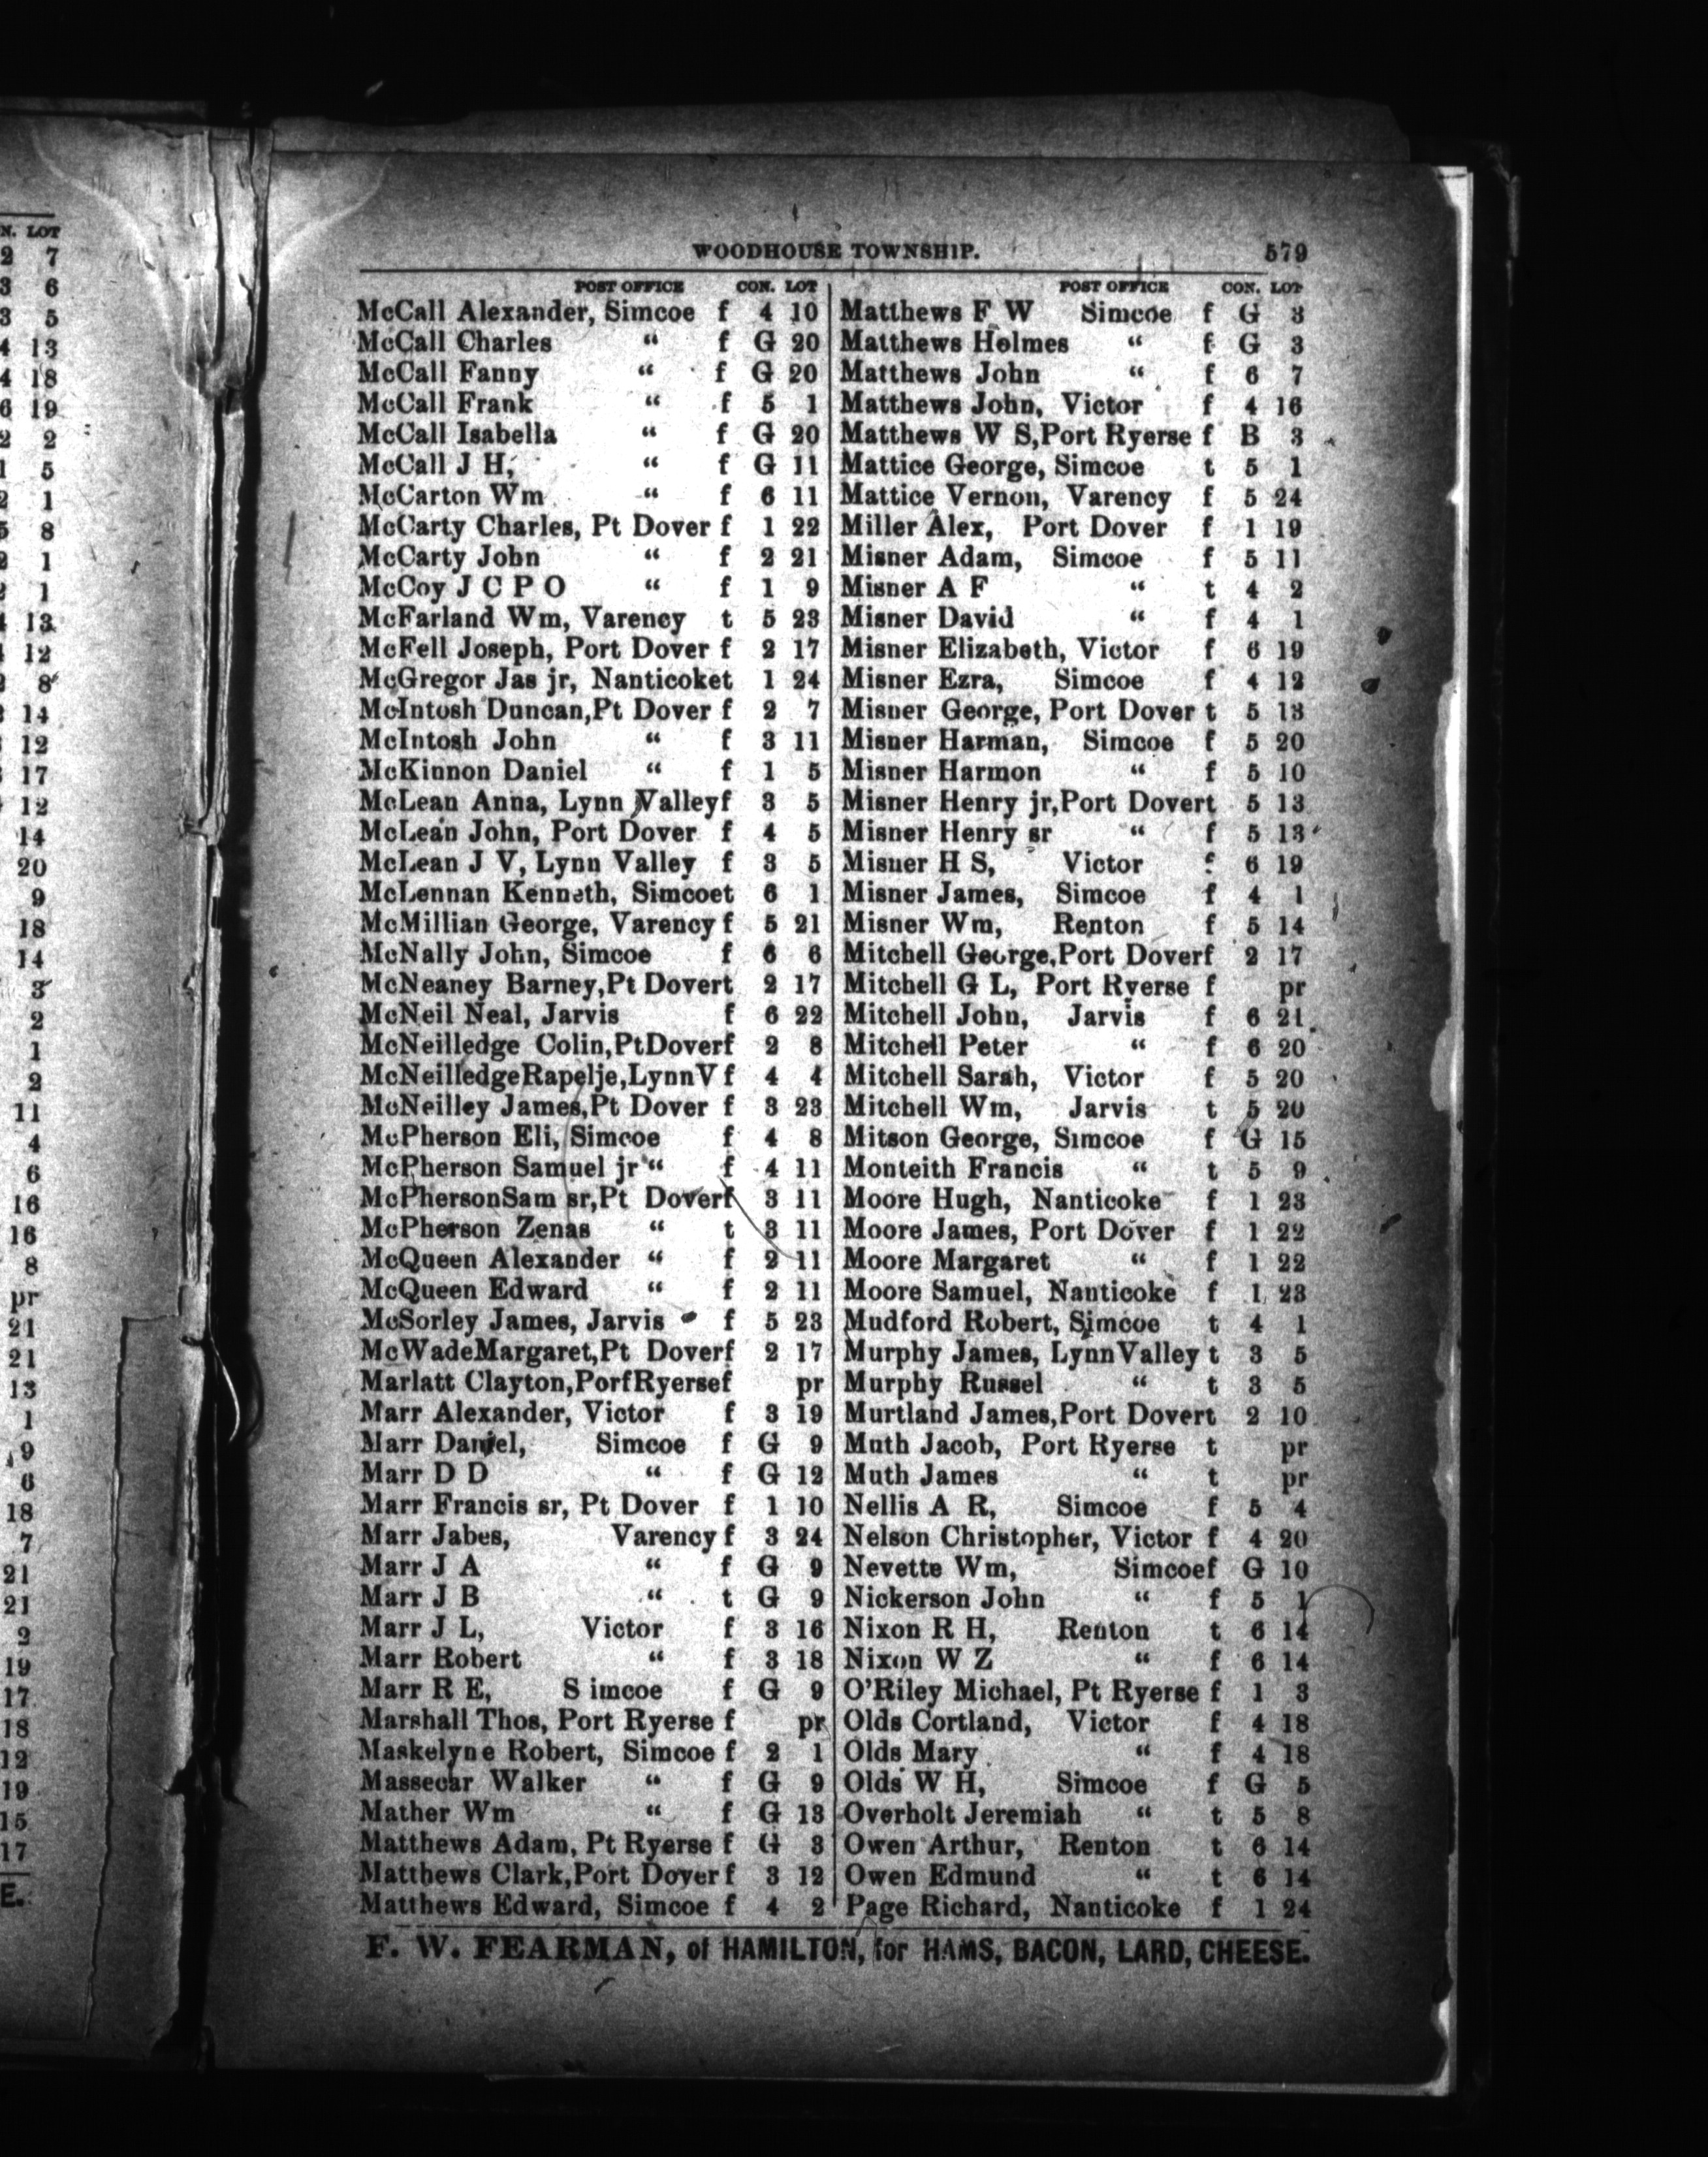 N. LOT
2 7
3 6
3 5
4 13
4 18
6 19
2 2
1 5
2 1
5 8
2 1
2 1
4 13
12
8
14
12
17
12
14
20
9
18
14
3
2
1
2
11
4
6
16
16
8
pr
21
21
13
1
9
6
18
7
21
21
2
19
17
18
12
19
15
17
E.
WOODHOUSE TOWNSHIP. 579
POST OFFICE CON. LOT
McCall Alexander, Simcoe f 4 10
McCall Charles “ f G 20
McCall Fanny “ f G 20
McCall Frank “ f 5 1
McCall Isabella “ f G 20
McCall J H, “ f G 11
McCarton Wm “ f 6 11
McCarty Charles, Pt Dover f 1 22
McCarty John “ f 2 21
McCoy J C P O “ f 1 9
McFarland Wm, Varency t 5 23
McFell Joseph, Port Dover f 2 17
McGregor Jas jr, Nanticoket 1 24
McIntosh Duncan,Pt Dover f 2 7
McIntosh John “ f 3 11
McKinnon Daniel “ f 1 5
McLean Anna, Lynn Valleyf 3 5
McLean John, Port Dover f 4 5
McLean J V, Lynn Valley f 3 5
McLennan Kenneth, Simcoet 6 1
McMillian George, Varency f 5 21
McNally John, Simcoe f 6 6
McNeaney Barney,Pt Dovert 2 17
McNeil Neal, Jarvis f 6 22
McNeilledge Colin,PtDoverf 2 8
McNeilledgeRapelje,LynnV f 4 4
McNeilley James,Pt Dover f 3 23
McPherson Eli, Simcoe f 4 8
McPherson Samuel jr “ f 4 11
McPhersonSam sr,Pt Doverf 3 11
McPherson Zenas “ t 3 11
McQueen Alexander “ f 2 11
McQueen Edward “ f 2 11
McSorley James, Jarvis f 5 23
McWadeMargaret,Pt Doverf 2 17
Marlatt Clayton,PorfRyersef pr
Marr Alexander, Victor f 3 19
Marr Daniel, Simcoe f G 9
Marr D D “ f G 12
Marr Francis sr, Pt Dover f 1 10
Marr Jabes, Varency f 3 24
Marr J A “ f G 9
Marr J B “ t G 9
Marr J L, Victor f 3 16
Marr Robert “ f 3 18
Marr R E, S imcoe f G 9
Marshall Thos, Port Ryerse f pr
Maskelyne Robert, Simcoe f 2 1
Massecar Walker “ f G 9
Mather Wm “ f G 13
Matthews Adam, Pt Ryerse f G 3
Matthews Clark,Port Dover f 3 12
Matthews Edward, Simcoe f 4 2
POST OFFICE CON. LOT
Matthews F W Simcoe f G 3
Matthews Holmes “ f G 3
Matthews John “ f 6 7
Matthews John, Victor f 4 16
Matthews W S,Port Ryerse f B 3
Mattice George, Simcoe t 5 1
Mattice Vernon, Varency f 5 24
Miller Alex, Port Dover f 1 19
Misner Adam, Simcoe f 5 11
Misner A F “ t 4 2
Misner David “ f 4 1
Misner Elizabeth, Victor f 6 19
Misner Ezra, Simcoe f 4 12
Misner George, Port Dover t 5 13
Misner Harman, Simcoe f 5 20
Misner Harmon “ f 5 10
Misner Henry jr,Port Dovert 5 13
Misner Henry sr “ f 5 13
Misner H S, Victor f 6 19
Misner James, Simcoe f 4 1
Misner Wm, Renton f 5 14
Mitchell George,Port Doverf 2 17
Mitchell G L, Port Ryerse f pr
Mitchell John, Jarvis f 6 21
Mitchell Peter “ f 6 20
Mitchell Sarah, Victor f 5 20
Mitchell Wm, Jarvis t 5 20
Mitson George, Simcoe f G 15
Monteith Francis “ t 5 9
Moore Hugh, Nanticoke f 1 23
Moore James, Port Dover f 1 22
Moore Margaret “ f 1 22
Moore Samuel, Nanticoke f 1 23
Mudford Robert, Simcoe t 4 1
Murphy James, LynnValley t 3 5
Murphy Russel “ t 3 5
Murtland James,Port Dovert 2 10
Muth Jacob, Port Ryerse t pr
Muth James “ t pr
Nellis A R, Simcoe f 5 4
Nelson Christopher, Victor f 4 20
Nevette Wm, Simcoef G 10
Nickerson John “ f 5 1
Nixon R H, Renton t 6 14
Nixon W Z “ f 6 14
O’Riley Michael, Pt Ryerse f 1 3
Olds Cortland, Victor f 4 18
Olds Mary “ f 4 18
Olds W H, Simcoe f G 5
Overholt Jeremiah “ t 5 8
Owen Arthur, Renton t 6 14
Owen Edmund “ t 6 14
Page Richard, Nanticoke f 1 24
F. W. FEARMAN, of HAMILTON, for HAMS, BACON, LARD, CHEESE.